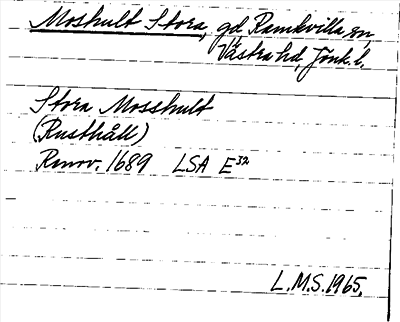 Moshult Stora, gd, Ramkvilla sn,
Västra hd, Jönk. l.
Stora Mosshult
(Rusthåll)
Ranov. 1689 LSA E³²
L.M.S. 1965.